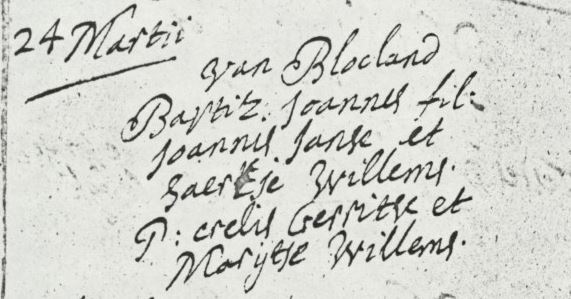 24 Martii
van Blocland
Baptiz: Joannes fil:
Joannis Janse et
Saertje Willems.
P: crelis Gerritse et
Marijtje Willems.